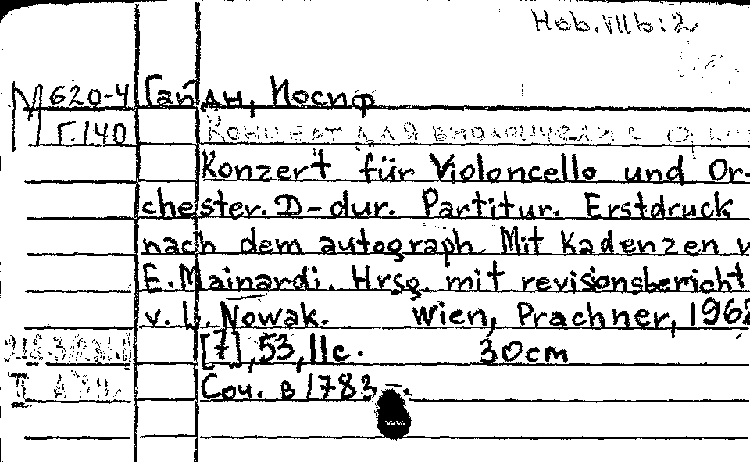 Hob. VIIb:2
М 620-4 Гайдн, Иосиф
Г.140 Концерт для виолончели с
Konzert für Violoncello und Or-
chester. D-dur. Partitur. Erstdruck
nach dem autograph. Mit Kadenzen v
E. Mainardi. Hrsg. mit revisionsbericht
v. L. Nowak. Wien, Prachner, 1962
[7], 53, 11 с. 30cm
Соч. в 1783 -.